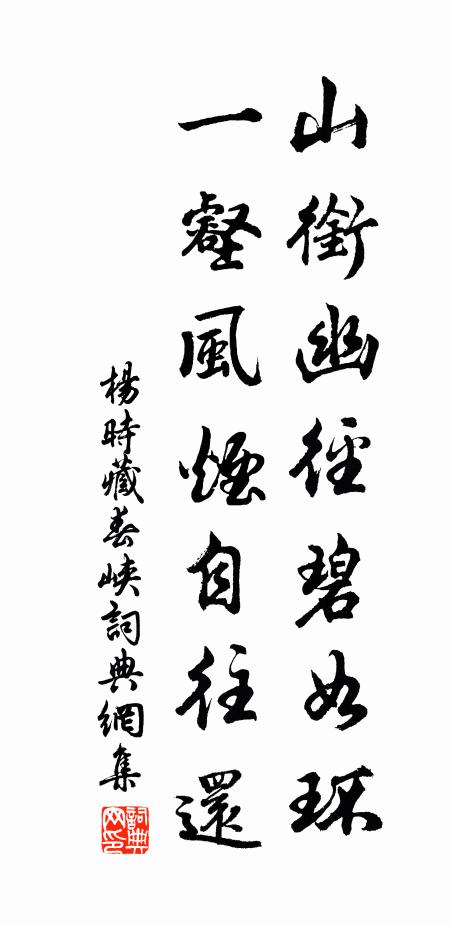 山銜幽徑碧如環
一壑風煙自往還
楊時藏春峽詞典網集
詞典网印